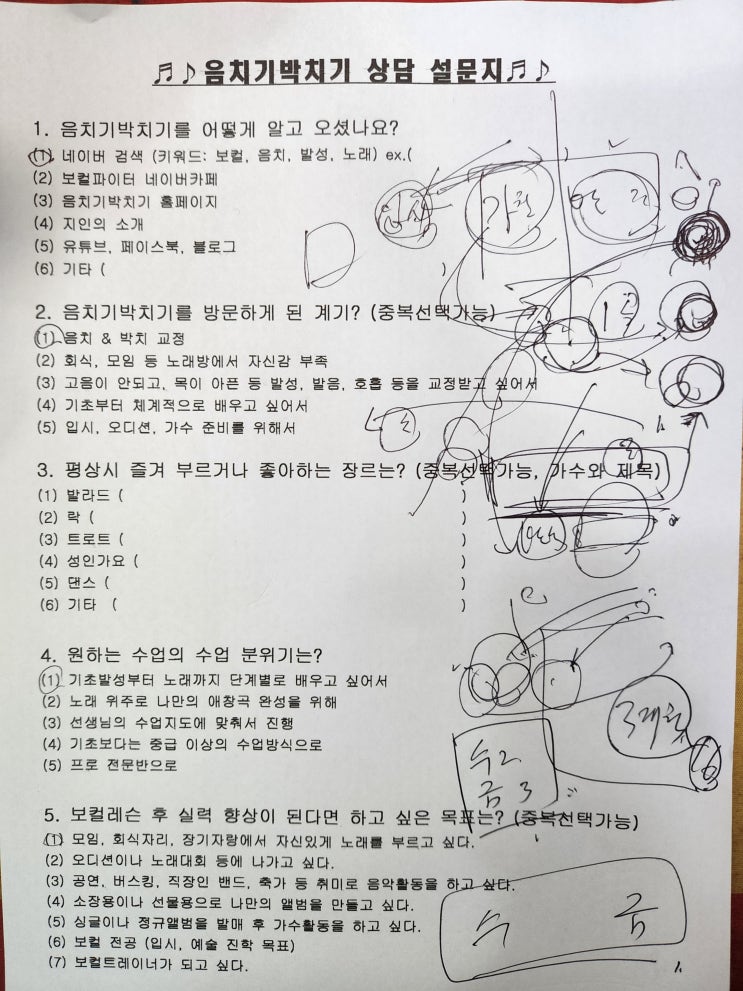 ♬♪음치기박치기 상담 설문지♬♪
1. 음치기박치기를 어떻게 알고 오셨나요?
(1) 네이버 검색 (키워드: 보컬, 음치, 발성, 노래) ex.( )
(2) 보컬파이터 네이버카페
(3) 음치기박치기 홈페이지
(4) 지인의 소개
(5) 유튜브, 페이스북, 블로그
(6) 기타 ( )
2. 음치기박치기를 방문하게 된 계기? (중복선택가능)
(1) 음치 & 박치 교정
(2) 회식, 모임 등 노래방에서 자신감 부족
(3) 고음이 안되고, 목이 아픈 등 발성, 발음, 호흡 등을 교정받고 싶어서
(4) 기초부터 체계적으로 배우고 싶어서
(5) 입시, 오디션, 가수 준비를 위해서
3. 평상시 즐겨 부르거나 좋아하는 장르는? (중복선택가능, 가수와 제목)
(1) 발라드 ( )
(2) 락 ( )
(3) 트로트 ( )
(4) 성인가요 ( )
(5) 댄스 ( )
(6) 기타 ( )
4. 원하는 수업의 수업 분위기는?
(1) 기초발성부터 노래까지 단계별로 배우고 싶어서
(2) 노래 위주로 나만의 애창곡 완성을 위해
(3) 선생님의 수업지도에 맞춰서 진행
(4) 기초보다는 중급 이상의 수업방식으로
(5) 프로 전문반으로
3개월
수 2
금 3
5. 보컬레슨 후 실력 향상이 된다면 하고 싶은 목표는? (중복선택가능)
(1) 모임, 회식자리, 장기자랑에서 자신있게 노래를 부르고 싶다.
(2) 오디션이나 노래대회 등에 나가고 싶다.
(3) 공연, 버스킹, 직장인 밴드, 축가 등 취미로 음악활동을 하고 싶다.
(4) 소장용이나 선물용으로 나만의 앨범을 만들고 싶다.
(5) 싱글이나 정규앨범을 발매 후 가수활동을 하고 싶다.
(6) 보컬 전공 (입시, 예술 진학 목표)
(7) 보컬트레이너가 되고 싶다.
수 금